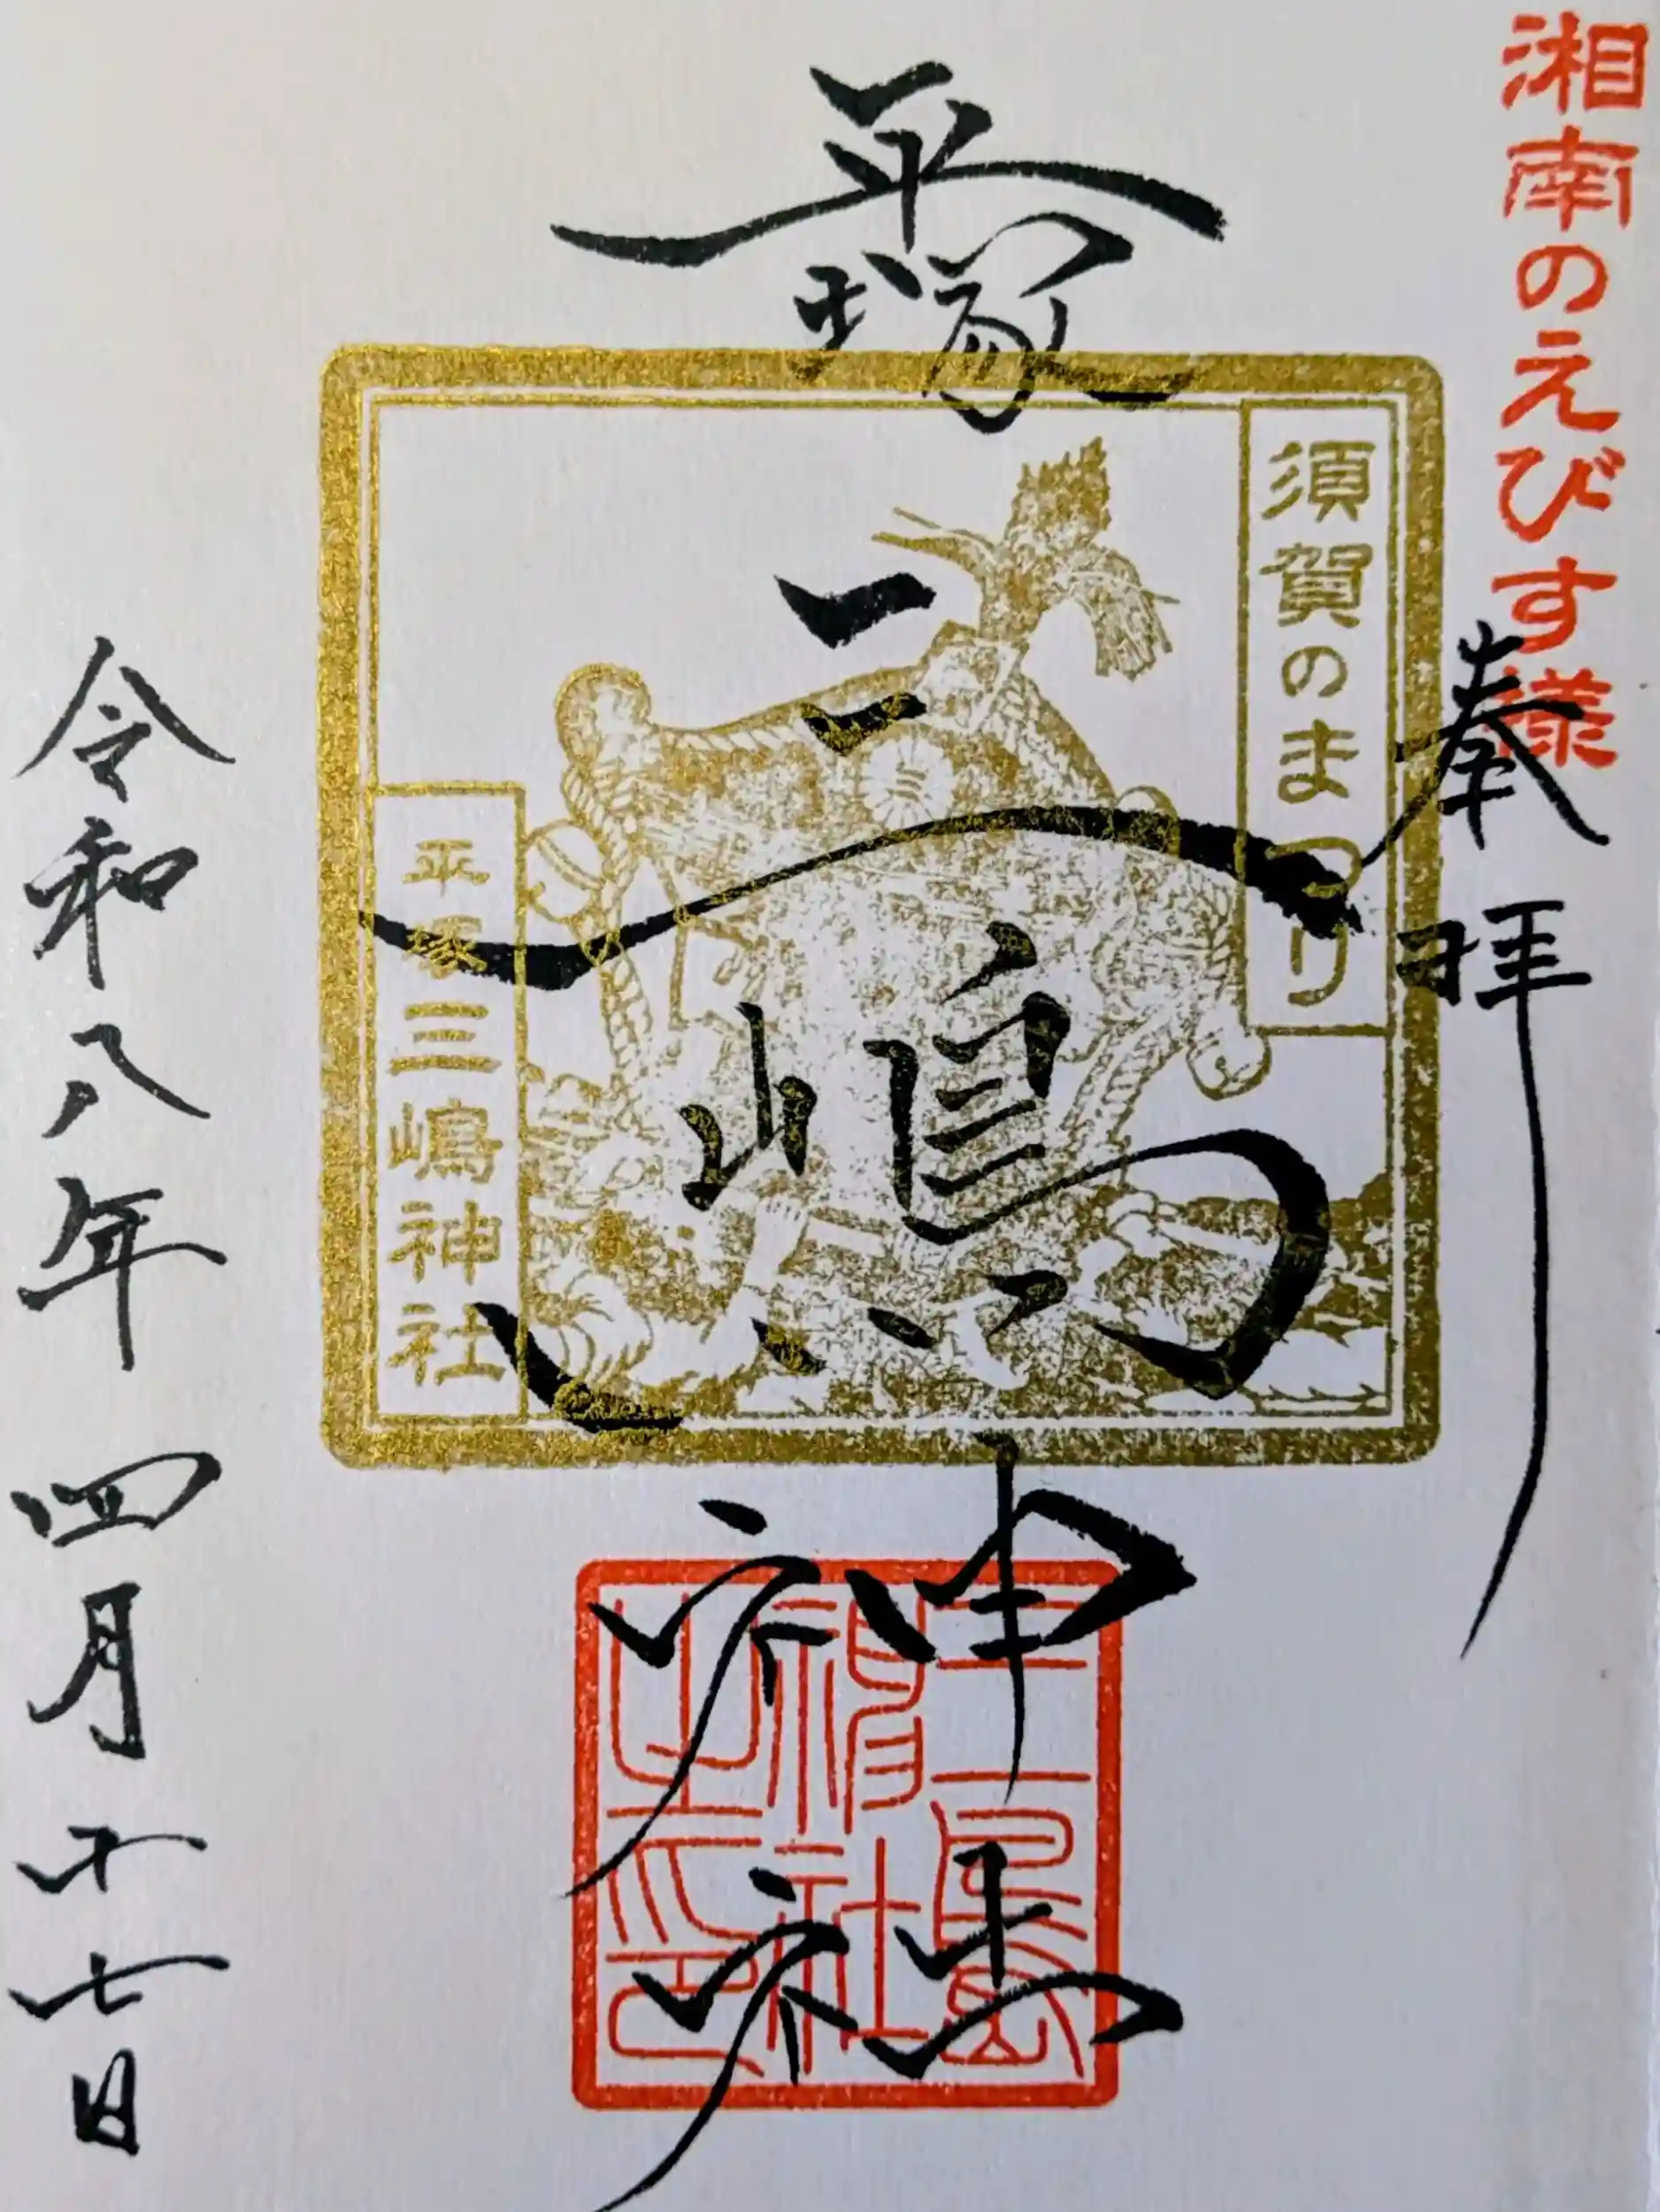 湘南のえびす様
奉拝
平塚
三嶋神社
須賀のまつり
平塚三嶋神社
三島神社之印
令和八年四月十七日